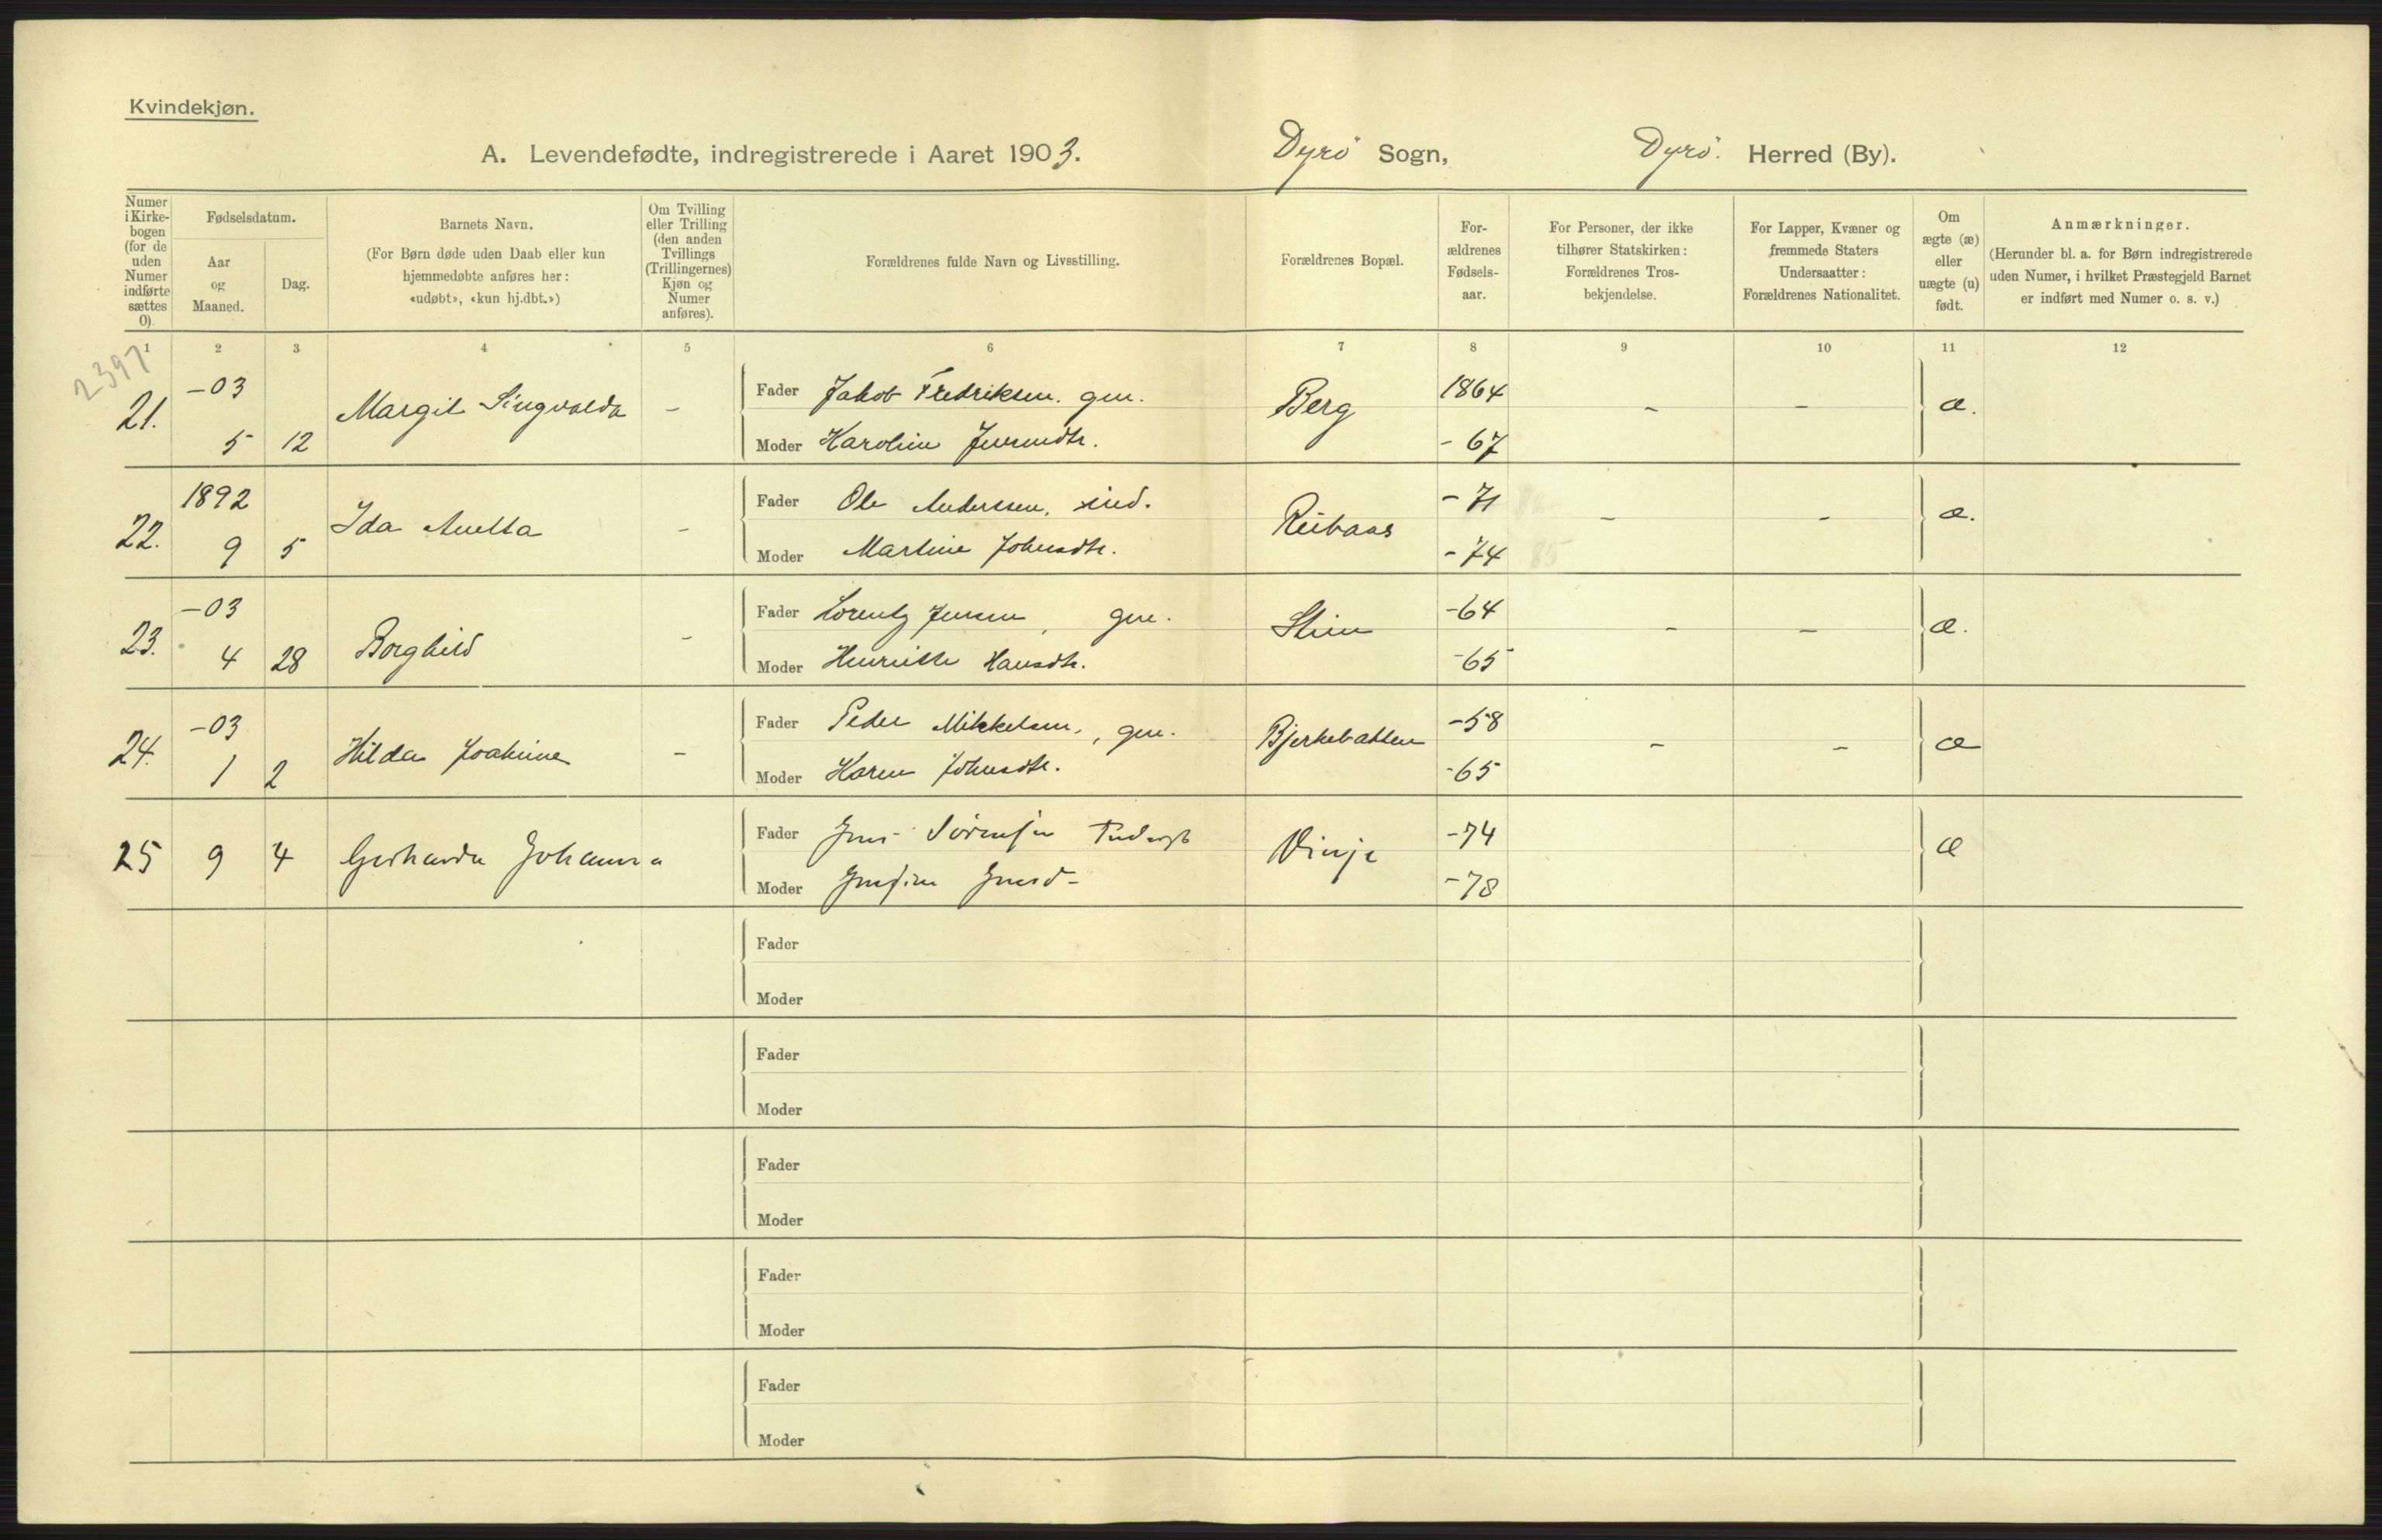 Kvindekjøn.
A. Levendefødte, indregistrerede i Aaret 1903. Dyrö Sogn, Dyrö. Herred (By).
Numer i Kirke-bogen (for de uden Numer indførte sættes 0).
Fødselsdatum.
Aar og Maaned.
Dag.
Barnets Navn.
(For Børn døde uden Daab eller kun hjemmedøbte anføres her: «udøbt», «kun hj.dbt.»)
Om Tvilling eller Trilling (den anden Tvillings (Trillingernes) Kjøn og Numer anføres).
Forældrenes fulde Navn og Livsstilling.
Forældrenes Bopæl.
For-ældrenes Fødsels-aar.
For Personer, der ikke tilhører Statskirken: Forældrenes Tros-bekjendelse.
For Lapper, Kvæner og fremmede Staters Undersaatter: Forældrenes Nationalitet.
Om ægte (æ) eller uægte (u) født.
Anmærkninger.
(Herunder bl. a. for Børn indregistrerede uden Numer, i hvilket Præstegjeld Barnet er indført med Numer o. s. v.)
1 2 3 4 5 6 7 8 9 10 11 12
2397
21. -03 5 12 Margit Singvalda - Fader Jakob Fredriksen. gm. Berg 1864 - - æ.
Moder Karoline Jensdtr. - 67
22. 1892 9 5 Ida Anetta - Fader Ole Anderssen, ind. Reibaas - 71 - - æ.
Moder Martine Johnsdtr. - 74 85
23. -03 4 28 Borghild - Fader Lorentz Jensen, gm. -64 - - æ.
Moder Henriette Hansdtr. -65
24. -03 1 2 Hilda Joakime - Fader Peder Mikkelsen, gm. Bjerkebakken -58 - - æ
Moder Karen Johnsdtr. -65
25 9 4 Gerharda Johanna Fader Jens Sørensen Vinje -74 æ
Moder Jensd- -78
Fader
Moder
Fader
Moder
Fader
Moder
Fader
Moder
Fader
Moder